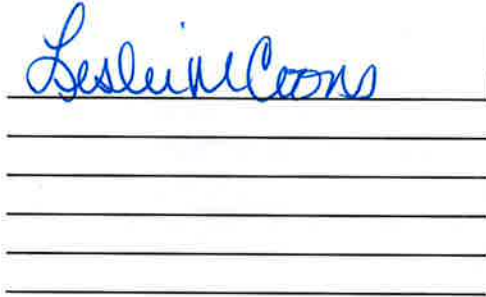 Leslie M Coons